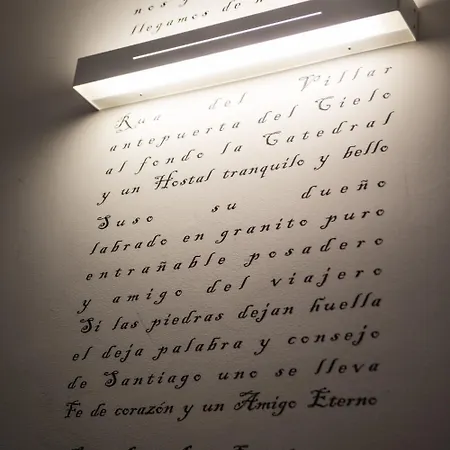 nos y
llegamos de
Rua del Villar
antepuerta del Cielo
al fondo la Catedral
y un Hostal tranquilo y bello
Suso su dueño
labrado en granito puro
entrañable posadero
y amigo del viajero
Si las piedras dejan huella
el deja palabra y consejo
de Santiago uno se lleva
Fe de corazón y un Amigo Eterno